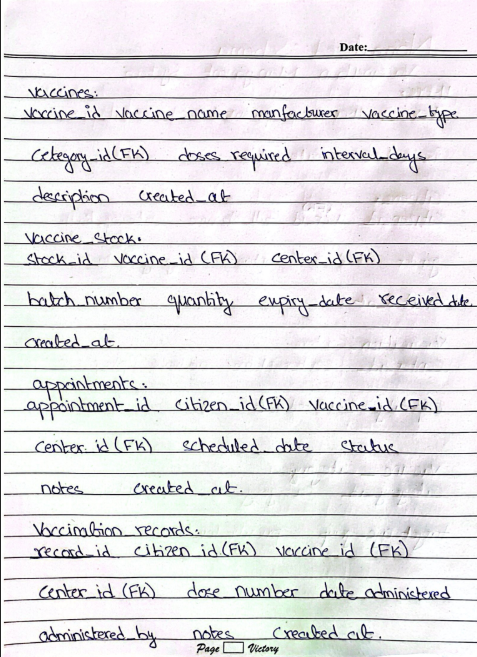 Date:
Vaccines:
vaccine_id vaccine_name manfacturer vaccine_type
Category_id(FK) doses required interval_days
description created_at
Vaccine_Stock.
stock_id vaccine_id (FK) center_id (FK)
batch number quantity expiry_date received date.
created_at.
appointments:
appointment_id citizen_id(FK) vaccine_id (FK)
center id (FK) scheduled date status
notes created_at.
Vaccination records:
record_id citizen id (FK) vaccine id (FK)
center id (FK) dose number date administered
administered by notes Created at.
Page Victory